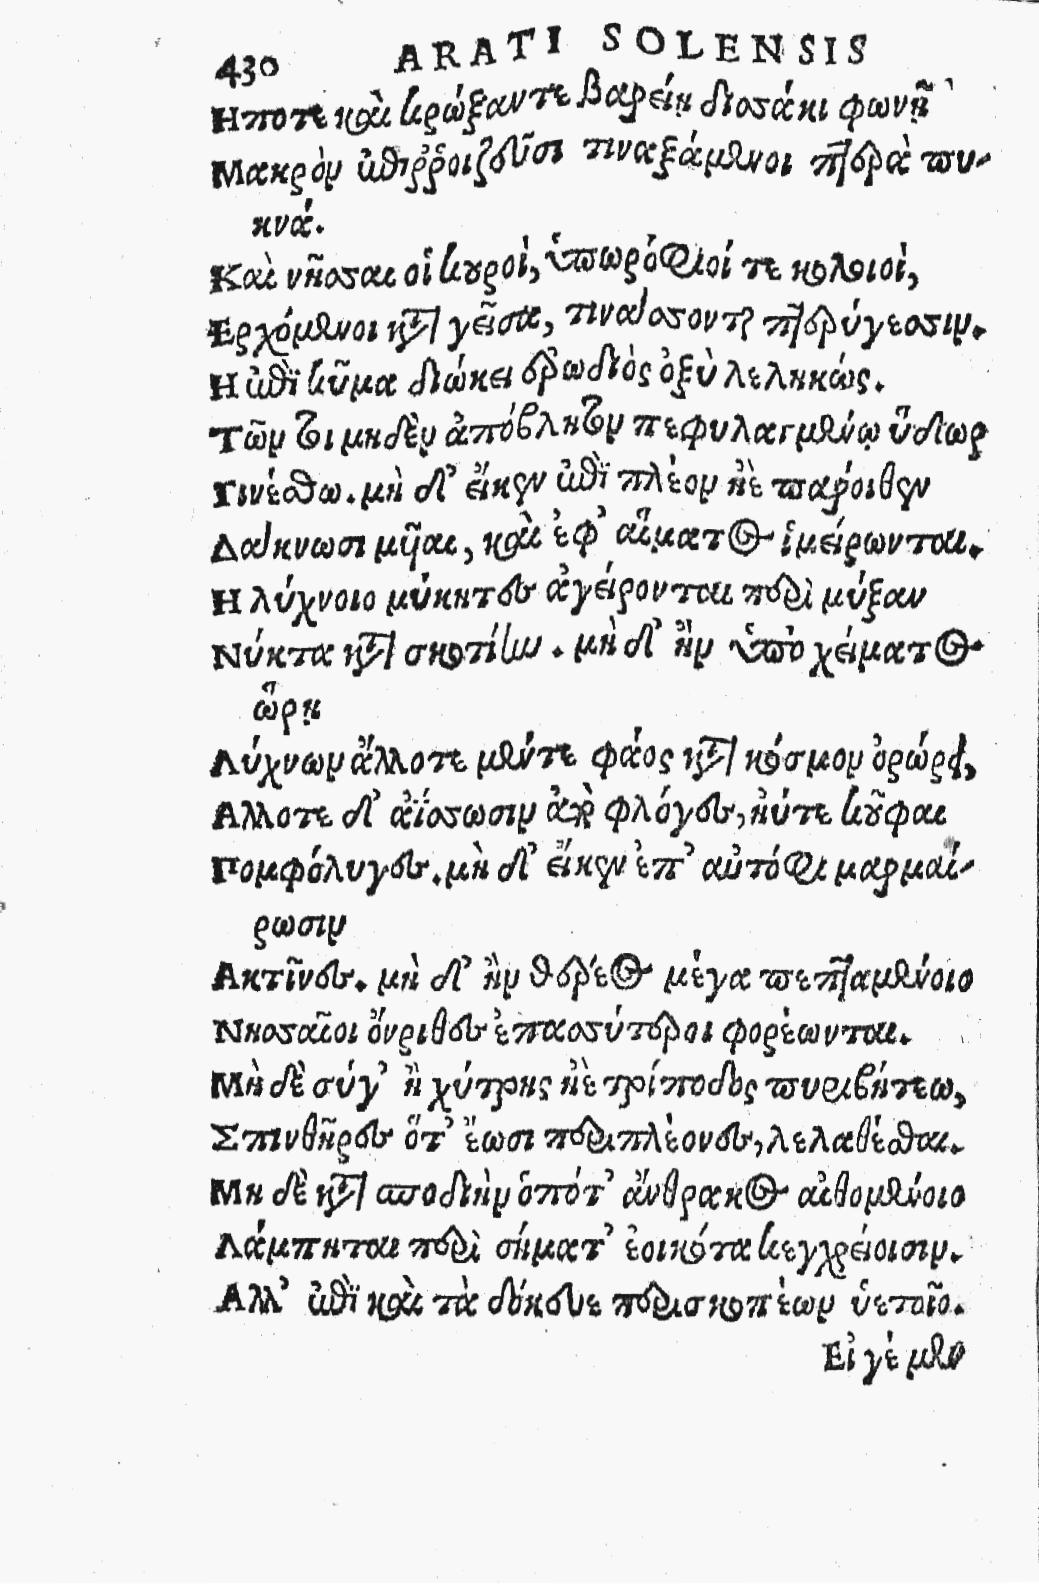 430 ARATI SOLENSIS
Ηποτε καὶ κρώξαντε βαρείῃ δισσάκι φωνῇ
Μακρὸν ἐπιῤῥοιζεῦσι τιναξάμενοι πτερὰ πυ-
κνά.
Καὶ νῆσσαι οἰκουροὶ, ὑπωρόφιοί τε κολοιοὶ,
Ερχόμενοι κατὰ γεῖσα, τινάσσονται πτερύγεσσιν.
Η ἐπὶ κῦμα διώκει ἐρωδιὸς ὀξὺ λεληκώς.
Τῶν τοι μηδὲν ἀπόβλητον πεφυλαγμένῳ ὕδωρ
Γινέσθω. μὴ δ' εἴκεν ἐπὶ πλέον ἠὲ πάροιθεν
Δάκνωσι μῦιαι, καὶ ἐφ' αἵματος ἱμείρωνται.
Η λύχνοιο μύκητες ἀγείρονται περὶ μύξαν
Νύκτα κατὰ σκοτίην. μὴ δ' ἢν ὑπὸ χείματος
ὥρῃ
Λύχνων ἄλλοτε μέντε φάος κατὰ κόσμον ὀρώρῃ,
Αλλοτε δ' ἀΐσσωσιν ἀπὸ φλόγες, ἠύτε κοῦφαι
Πομφόλυγες. μὴ δ' εἴκεν ἐπ' αὐτόφι μαρμαί-
ρωσιν
Ακτῖνες. μὴ δ' ἢν θέρεος μέγα πεπταμένοιο
Νησσαῖοι ὄνριθες ἐπασσύτεροι φορέωνται.
Μὴ δὲ σύγ' ἢ χύτρης ἠὲ τρίποδος πυριβήτεω,
Σπινθῆρες ὅτ' ἔωσι περιπλέονες, λελαθέσθαι.
Μη δὲ κατὰ σποδιὴν ὁπότ' ἄνθρακος αἰθομένοιο
Λάμπηται περὶ σήματ' ἐοικότα κεγχρείοισιν.
Αλλ' ἐπὶ καὶ τὰ δόκευε περισκοπέων ὑετοῖο.
Εἰ γέ μὲν